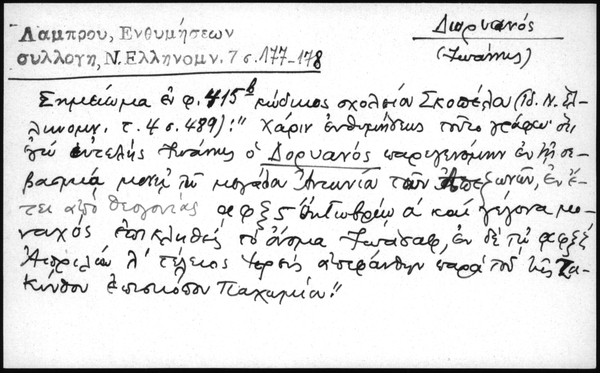 Λάμπρου, Ενθυμήσεων
συλλογη, Ν. Ελληνομν. 7 σ. 177-178
Δορυανός
(Ἰωάννης)
Σημείωμα ἐν φ. 415β κώδικος σχολείου Σκοπέλου (ἰδ. Ν. Ἑλ-
ληνομν. τ. 4 σ. 489): "Χάριν ἐνθυμήσεως τοῦτο γράφω ὅτι
ἐγὼ εὐτελής Ἰωάννης ὁ Δορυανός παραγενόμην ἐν τῇ σε-
βασμίᾳ μονῇ τοῦ μεγάλου Ἀντωνίου τῶν Ἀπεζωνῶν, ἐν ἔ-
τει ἀπὸ θεογονίας αφξς Ὀκτωβρίῳ α καὶ γέγονα μο-
ναχὸς ἐπικληθείς τὸ ὄνομα Ἰωάσαφ, ἐν δὲ τῷ αφξξ
Ἀπριλίῳ λ' τέλειος ἱερεύς ἀπεφάνθην παρὰ τοῦ τῆς Ζα-
κύνθου ἐπισκόπου Παχωμίου."